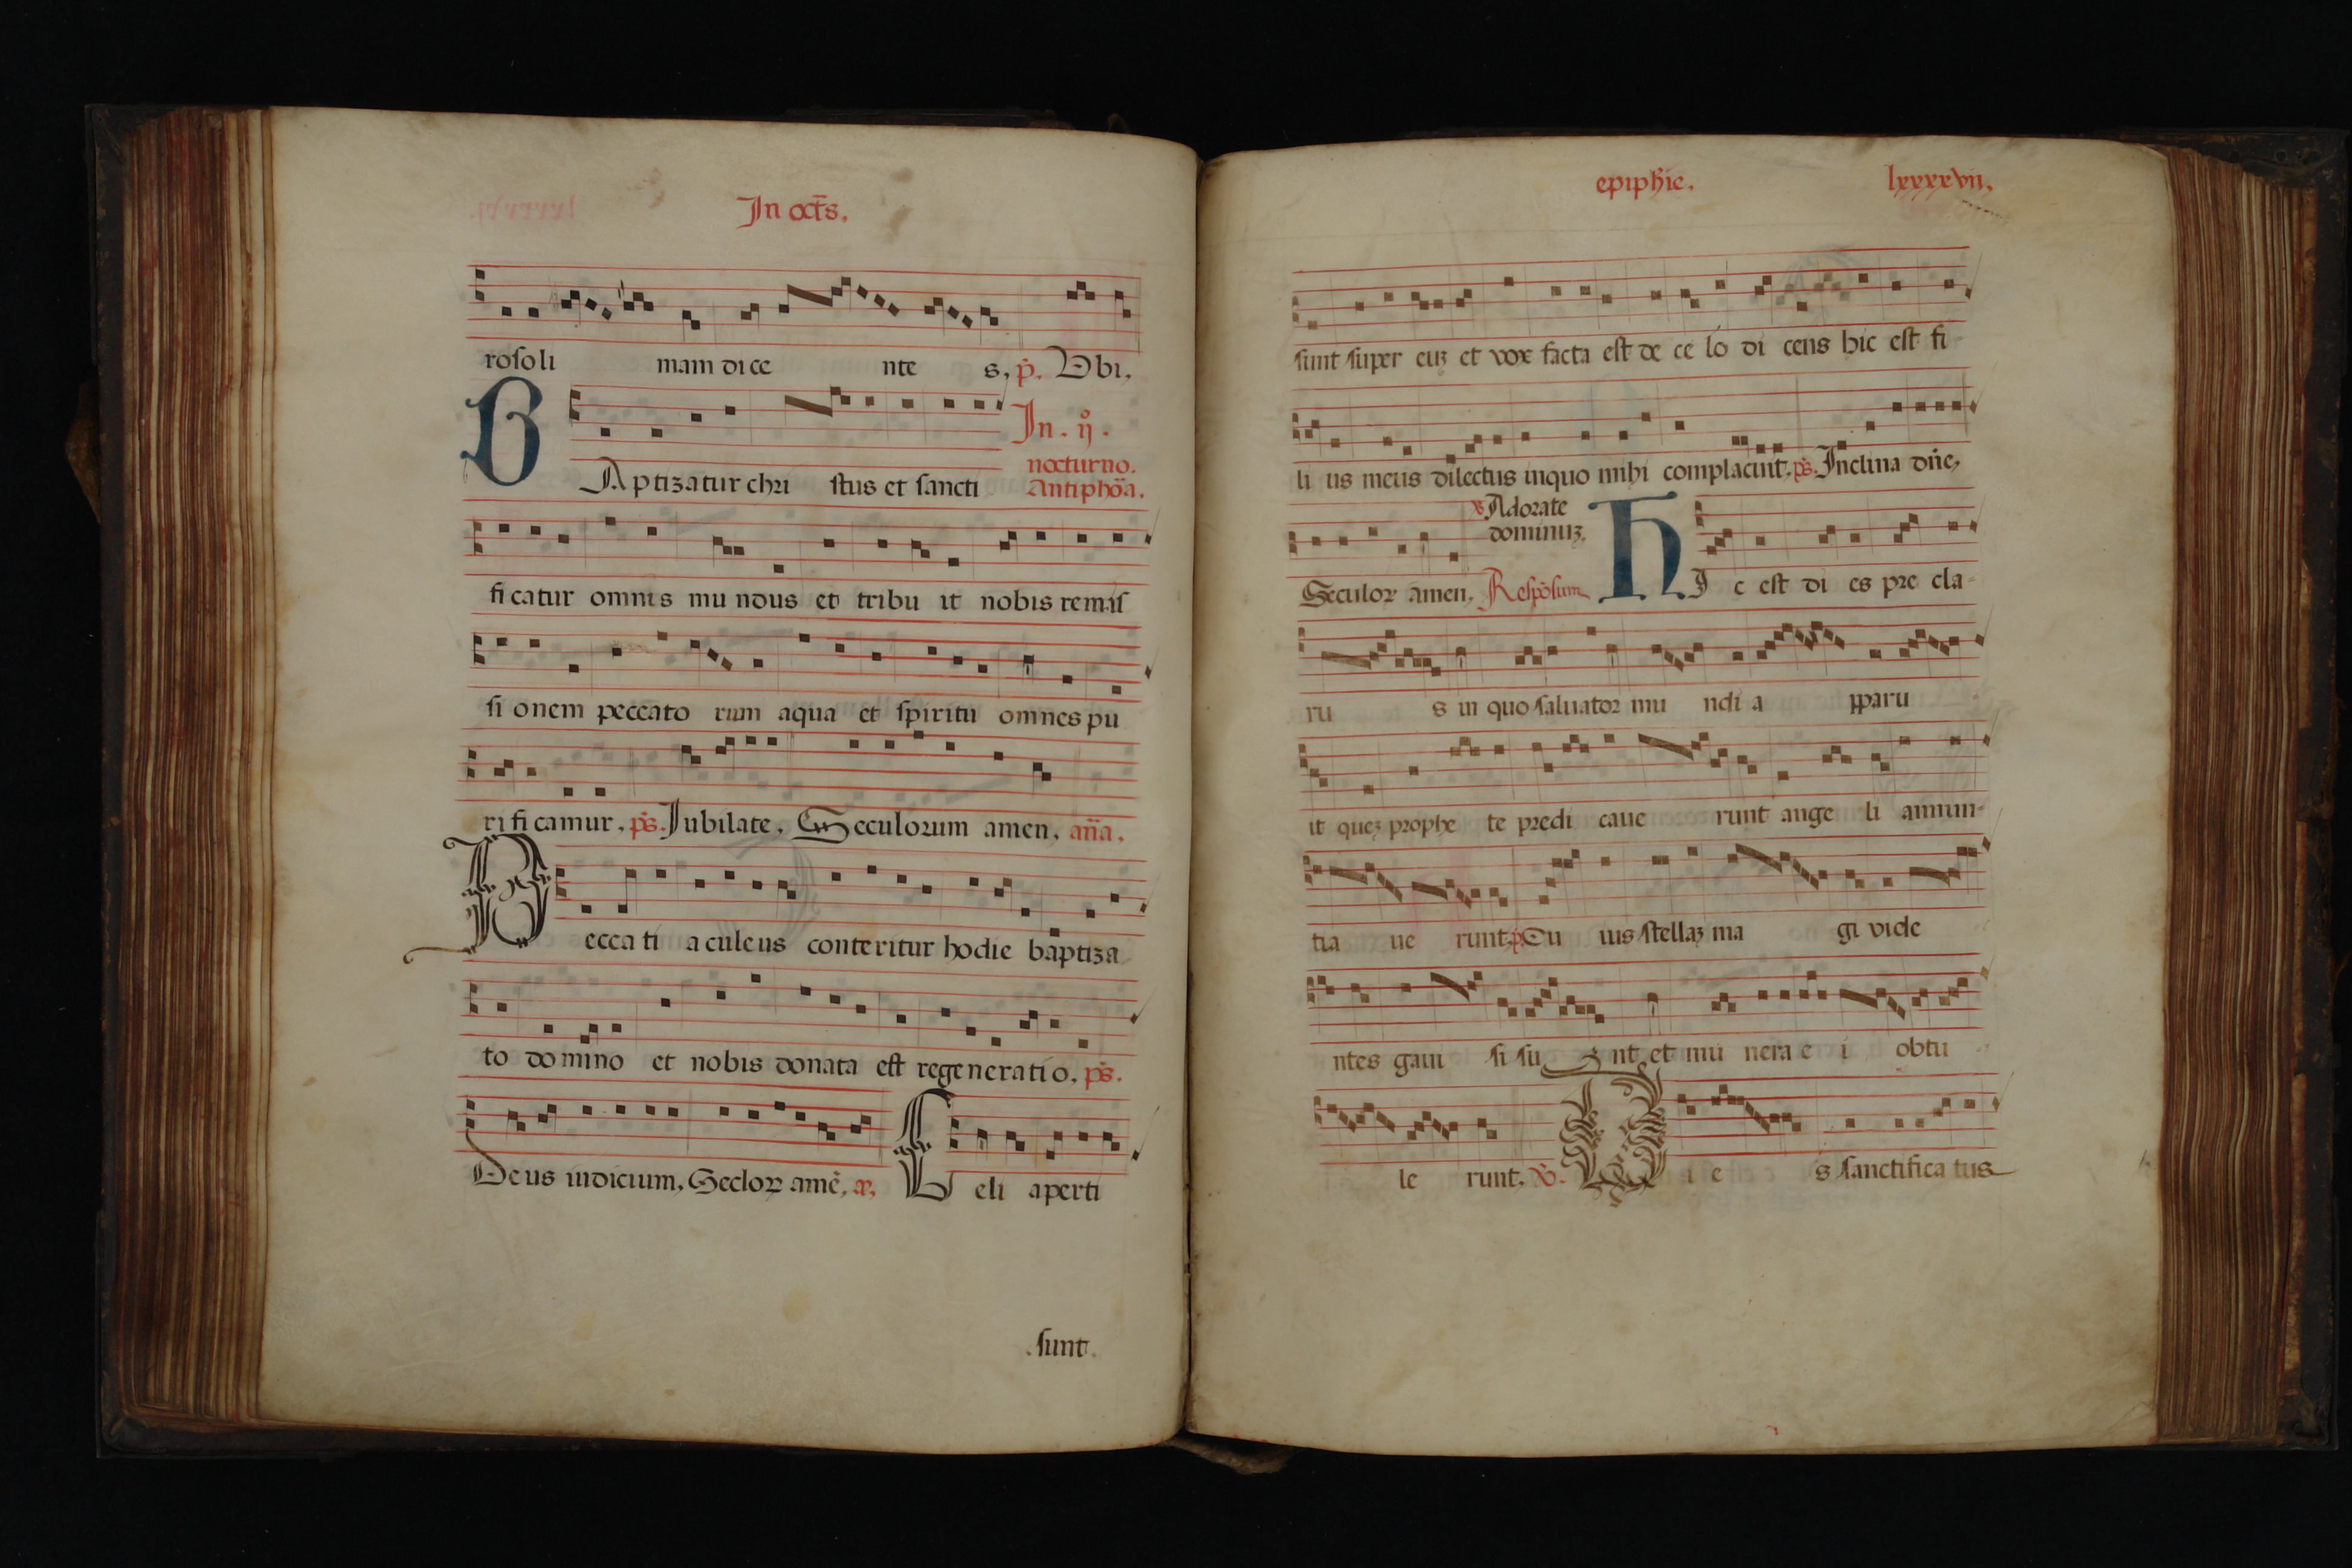 In octs̄.
roſoli mam dice nte s, p̄. Vbi,
BAptizatur chri stus et ſancti
In . ij .
nocturno.
Antiphōa.
ficatur omnis mundus et tribu it nobis remiſ
ſi onem peccato rum aqua et ſpiritu omnes pu
rificamur, ps̄. Iubilate, Seculorum amen, an̄a.
Peccati aculeus conteritur hodie baptiza
to domino et nobis donata est regeneratio, ps̄.
Deus iudicium, Seclorꝝ amē, a,
Celi aperti
.ſunt.
epiphie.
lxxxxvii,
ſunt ſuper euꝫ et vox facta est de celo di cens hic est fi
li us meus dilectus inquo mihi complacuit, ps̄. Inclina dn̄e,
℣ Adorate
dominuꝫ.
Seculoꝝ amen, Reſpōſum
HIc est di es pre cla-
ru s in quo saluator mu ndi a pparu
it queꝫ prophe te predi caue runt ange li annun-
tia ue runt, p̄ Cu ius ſtellaꝫ ma gi vide
ntes gaui si su nt et mu nera e i obtu
le runt. ℣.
Die s ſanctificatus